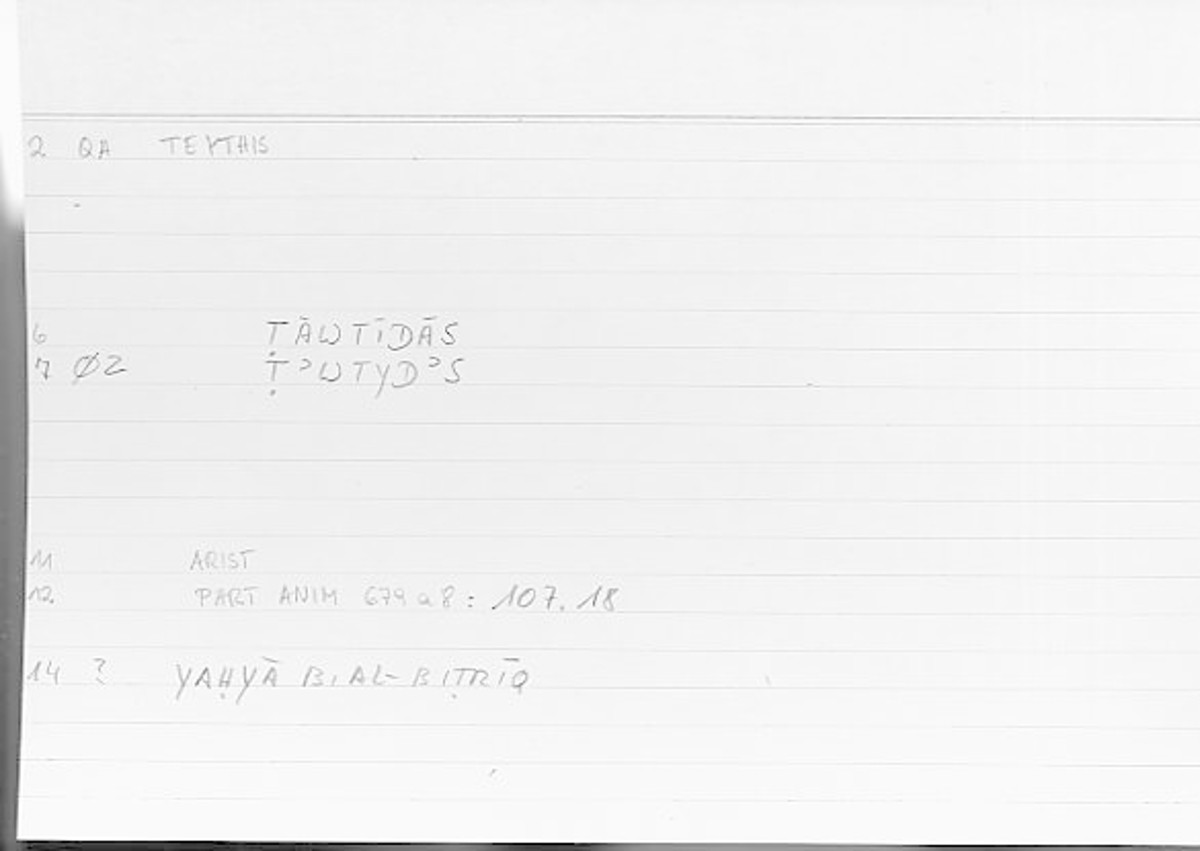 2 QA TEYTHIS
6 ṬĀWTĪDĀS
7 Ø2 ṬʾWTYDʾS
11 ARIST
12 PART ANIM 679 a 8 : 107. 18
14 ? YAḤYĀ B. AL-BIṬRĪQ